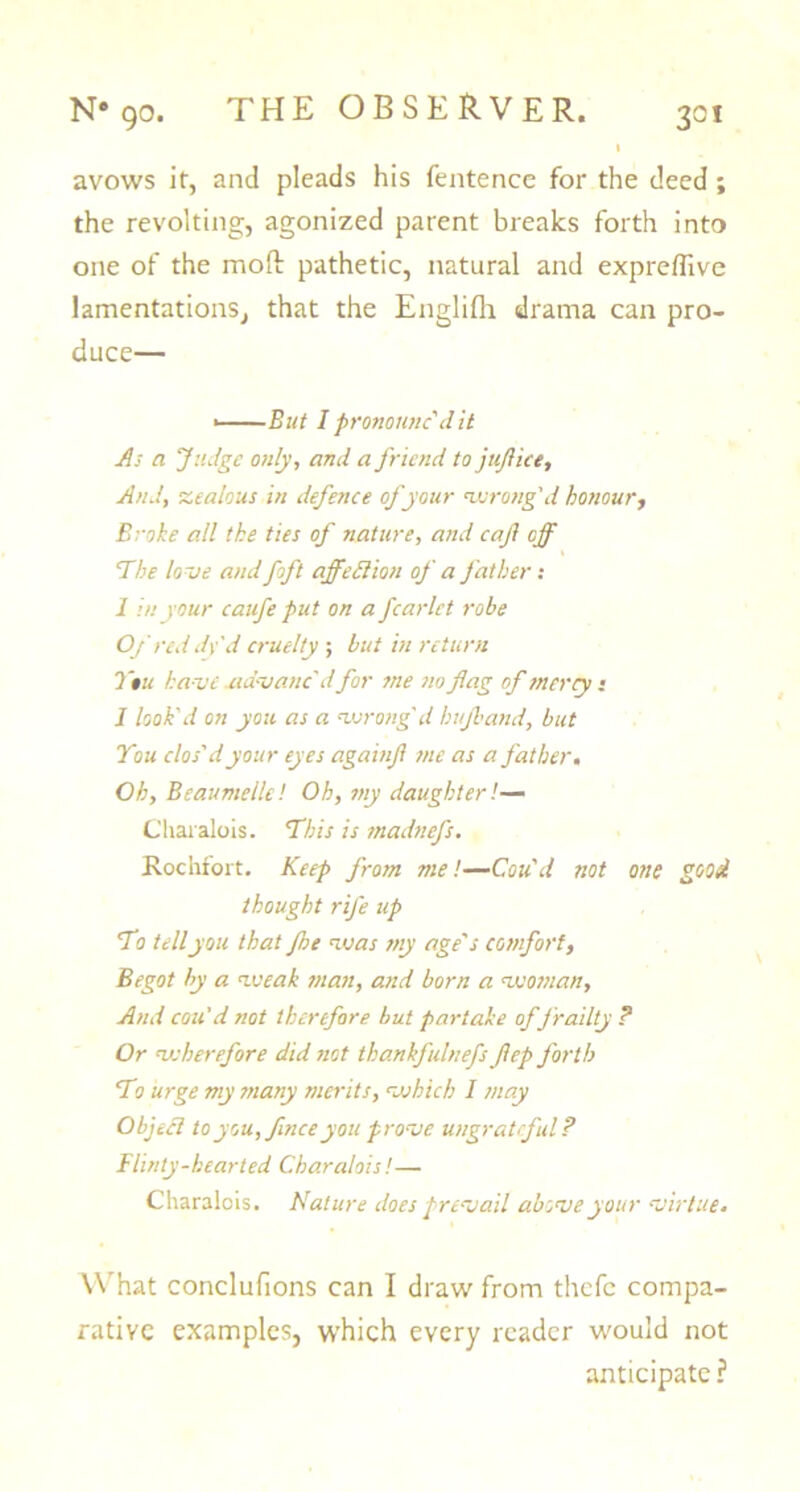 N° 90. THE OBSERVER. 301
avows it, and pleads his ſentence for the deed;
the revolting, agonized parent breaks forth into
one of the moſt pathetic, natural and expreſſive
lamentations, that the Engliſh drama can pro-
duce—
——But I pronounc'd it
As a Judge only, and a friend to juſtice,
And, zealous in defence of your wrong'd honour,
Broke all the ties of nature, and caſt off
The love and ſoft affection of a father:
I in your cauſe put on a ſcarlet robe
Of red dy'd cruelty; but in return
You have advanc'd for me no flag of mercy:
I look'd on you as a wrong'd huſband, but
You clos'd your eyes againſt me as a father.
Oh, Beaumelle! Oh, my daughter!—
Charalois. This is madneſs.
Rochfort. Keep from me!—Cou'd not one good
thought riſe up
To tell you that ſhe was my age's comfort,
Begot by a weak man, and born a woman,
And cou'd not therefore but partake of frailty?
Or wherefore did not thankfulneſs ſtep forth
To urge my many merits, which I may
Object to you, ſince you prove ungrateful?
Flinty-hearted Charalois!—
Charalois. Nature does prevail above your virtue.
What concluſions can I draw from theſe compa-
rative examples, which every reader would not
anticipate?